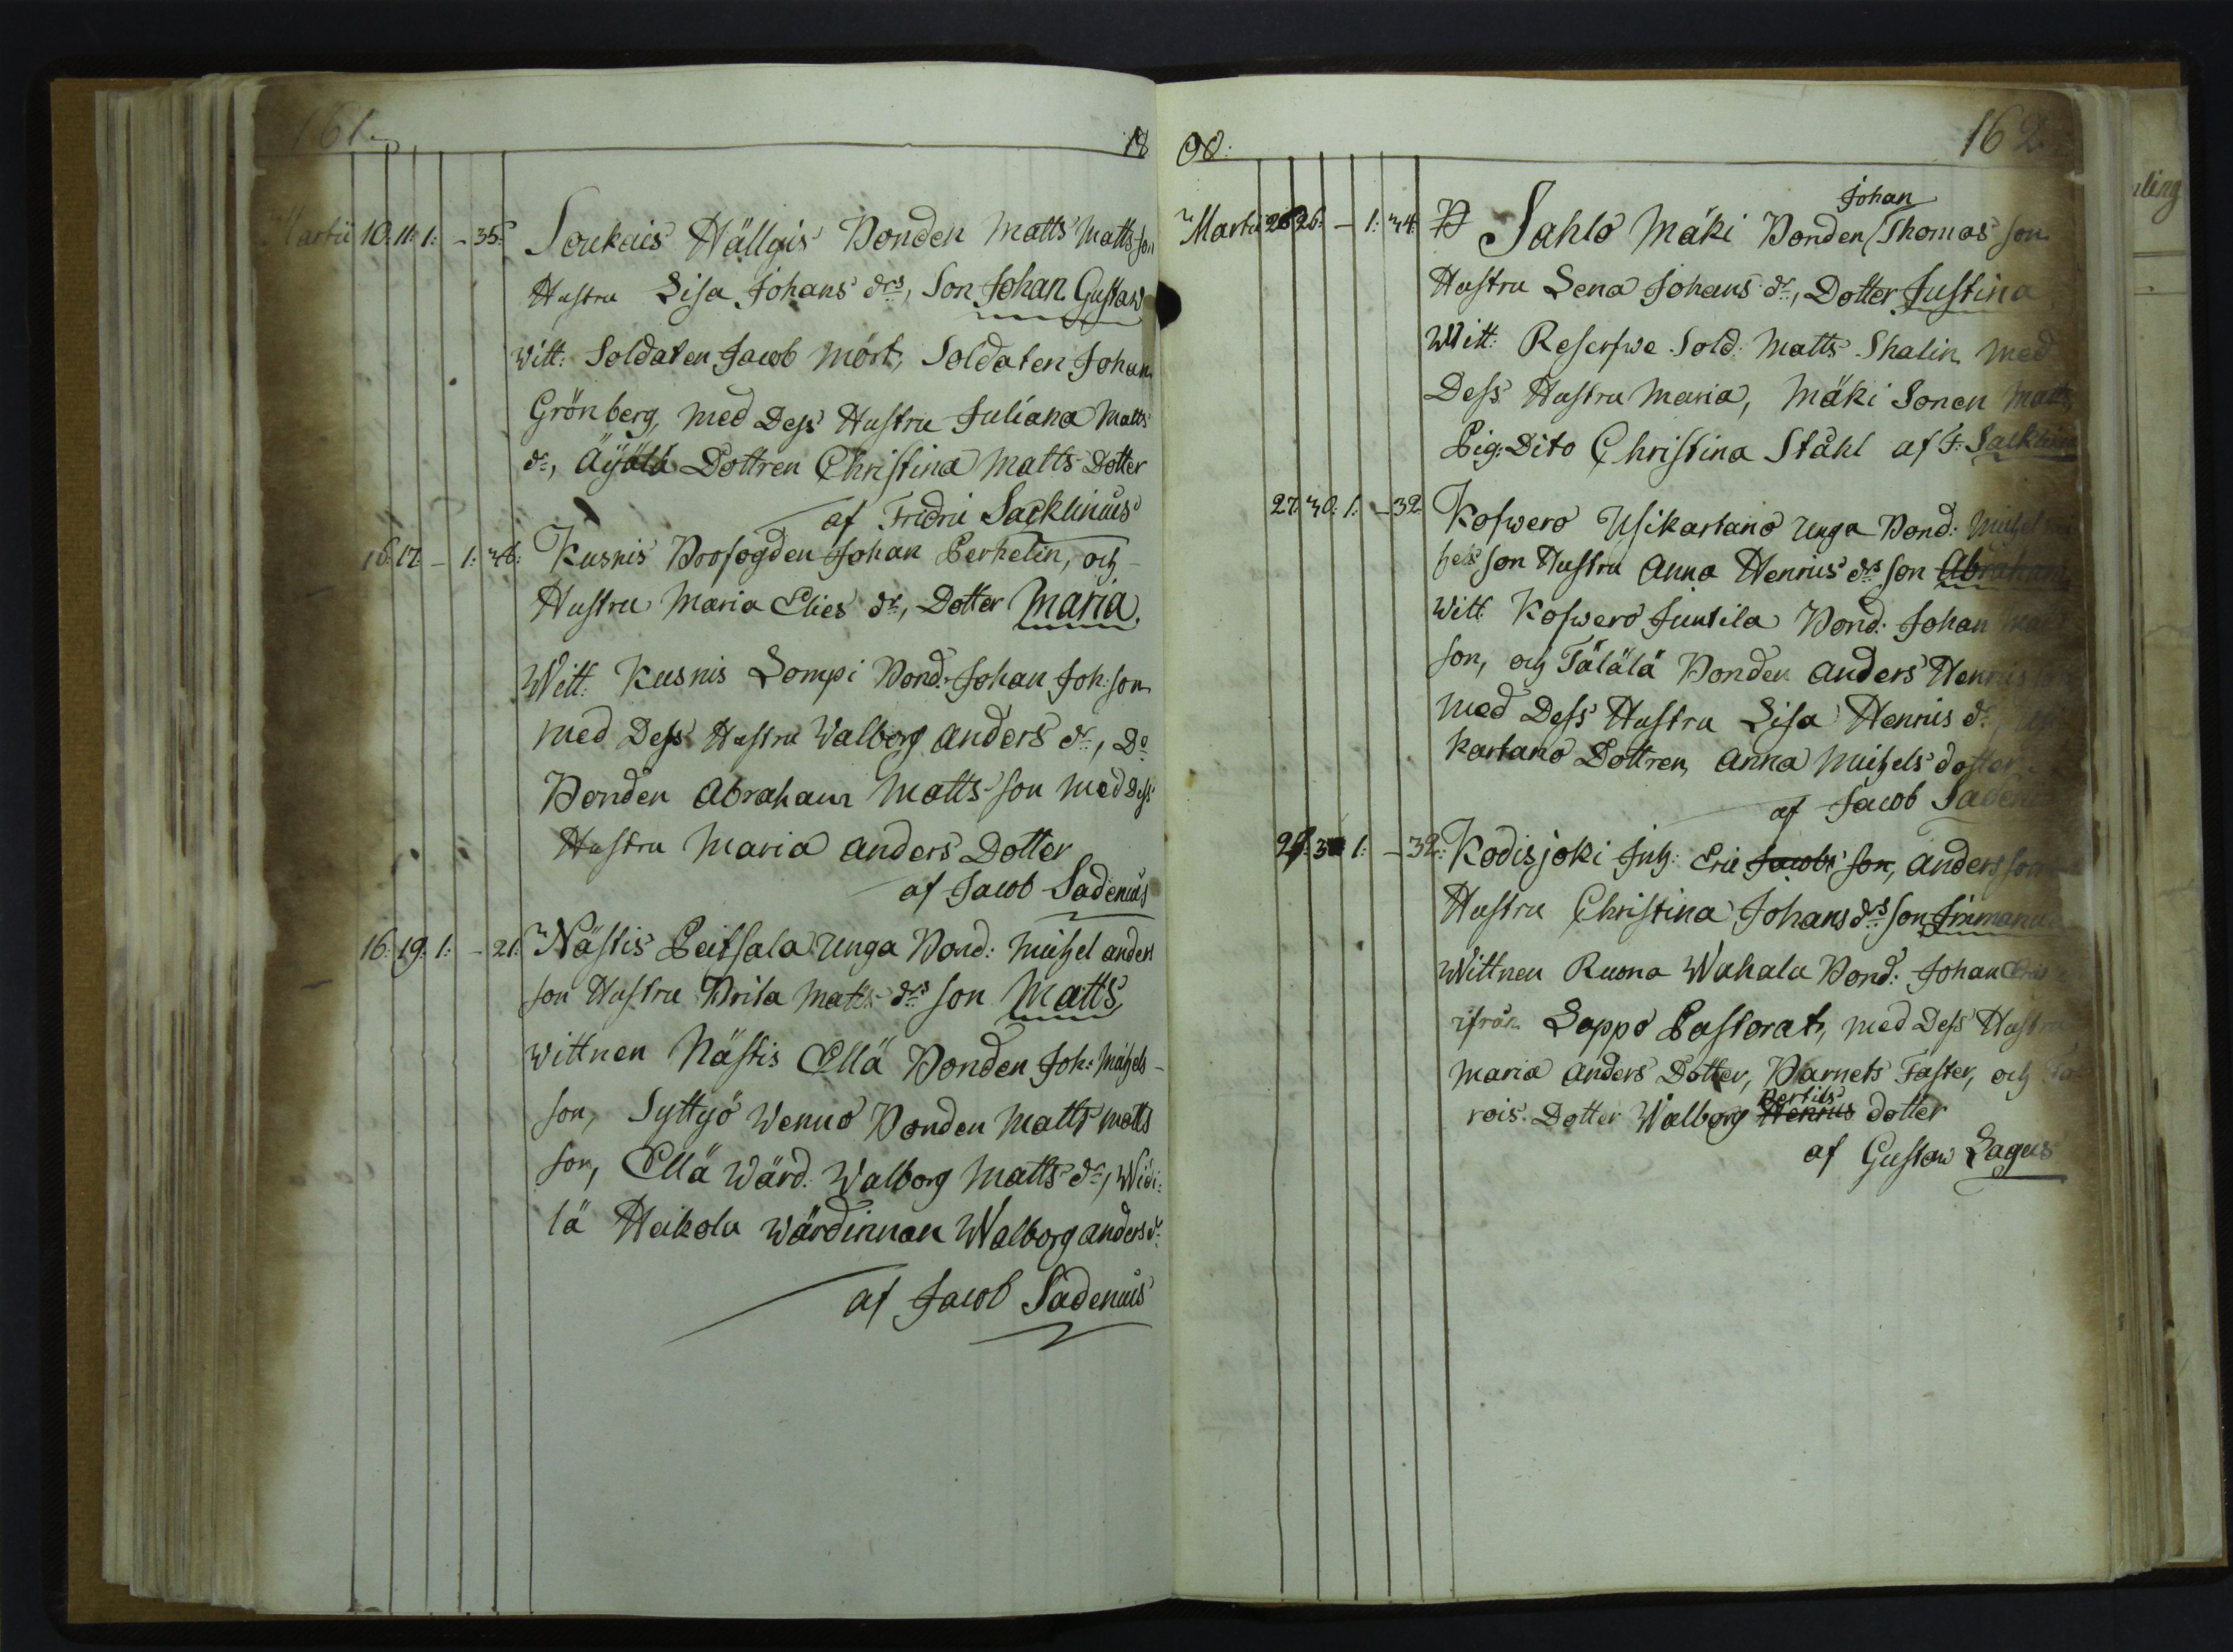 161
18
Martii 10. 11. 1: – 35: Soukais Hällgis Bonden Matts Matts son
Hustru Lisa Johans drs, Son Johan Gustaw
Witt: Soldaten Jacob Mört, Soldaten Johan
Grönberg, med Dess Hustru Juliana Matts
dr, Äÿälä Dottren Christina Matts Dotter
af Fridric Sacklinius
16. 17 – 1: 26: Kusnis Brofogden Johan Perhelin, och
Hustru Maria Elies dr, Dotter Maria.
Witt: Kusnis Lompi Bond. Johan Joh: son
med Dess Hustru Walborg Anders dr, Do
Bonden Abraham Matts son med Dess
Hustru Maria Anders Dotter
af Jacob Sadenius
16: 19. 1: – 21. Nästis Peitsala Unga Bond: Michel Anders
son Hustru Brita Matts drs son Matts
Wittnen Nästis Ellä Bonden Joh: Michels
son, Syttyö Wenno Bonden Matts Matts
son, Ellä Wärd. Walborg Matts dr, Widi:
lä Heikola Wärdinnan Walborg Anders dr
af Jacob Sadenius
08:
162
Johan
Martii 26 26. – 1: 24. B Sahlo Mäki Bonden Thomas son
Hustru Lena Johans dr, Dotter Justina
Witt: Reserfwe Sold: Matts Shalin med
Dess Hustru Maria, Mäki Sonen Matts,
Pig: Dito Christina Ståhl af F: Sacklin
27. 30. 1. – 32 Kofwero Usikartano Unga Bond: Michel
hels son Hustru Anna Henrics drs son Abraham
Witt: Kofwero Juntila Bond: Johan Matts
son, och Tälälä Bonden Anders Henrics son
med Dess Hustru Lisa Henrics dr,
kartano Dottren Anna Michels dotter
af Jacob Sadeni
29. 30 1: – 32: Kodisjoki Inh: Eric Jacobs son, Anders son
Hustru Christina Johans drs son Immanu
Wittnen Ruona Wahala Bond: Johan Erics
ifrån Lappo Pastorat, med Dess Hustru
Maria Anders Dotter, Barnets Faster, och
Bertils
rois Dotter Walborg Henrics dotter
af Gustaw Lagus
ling